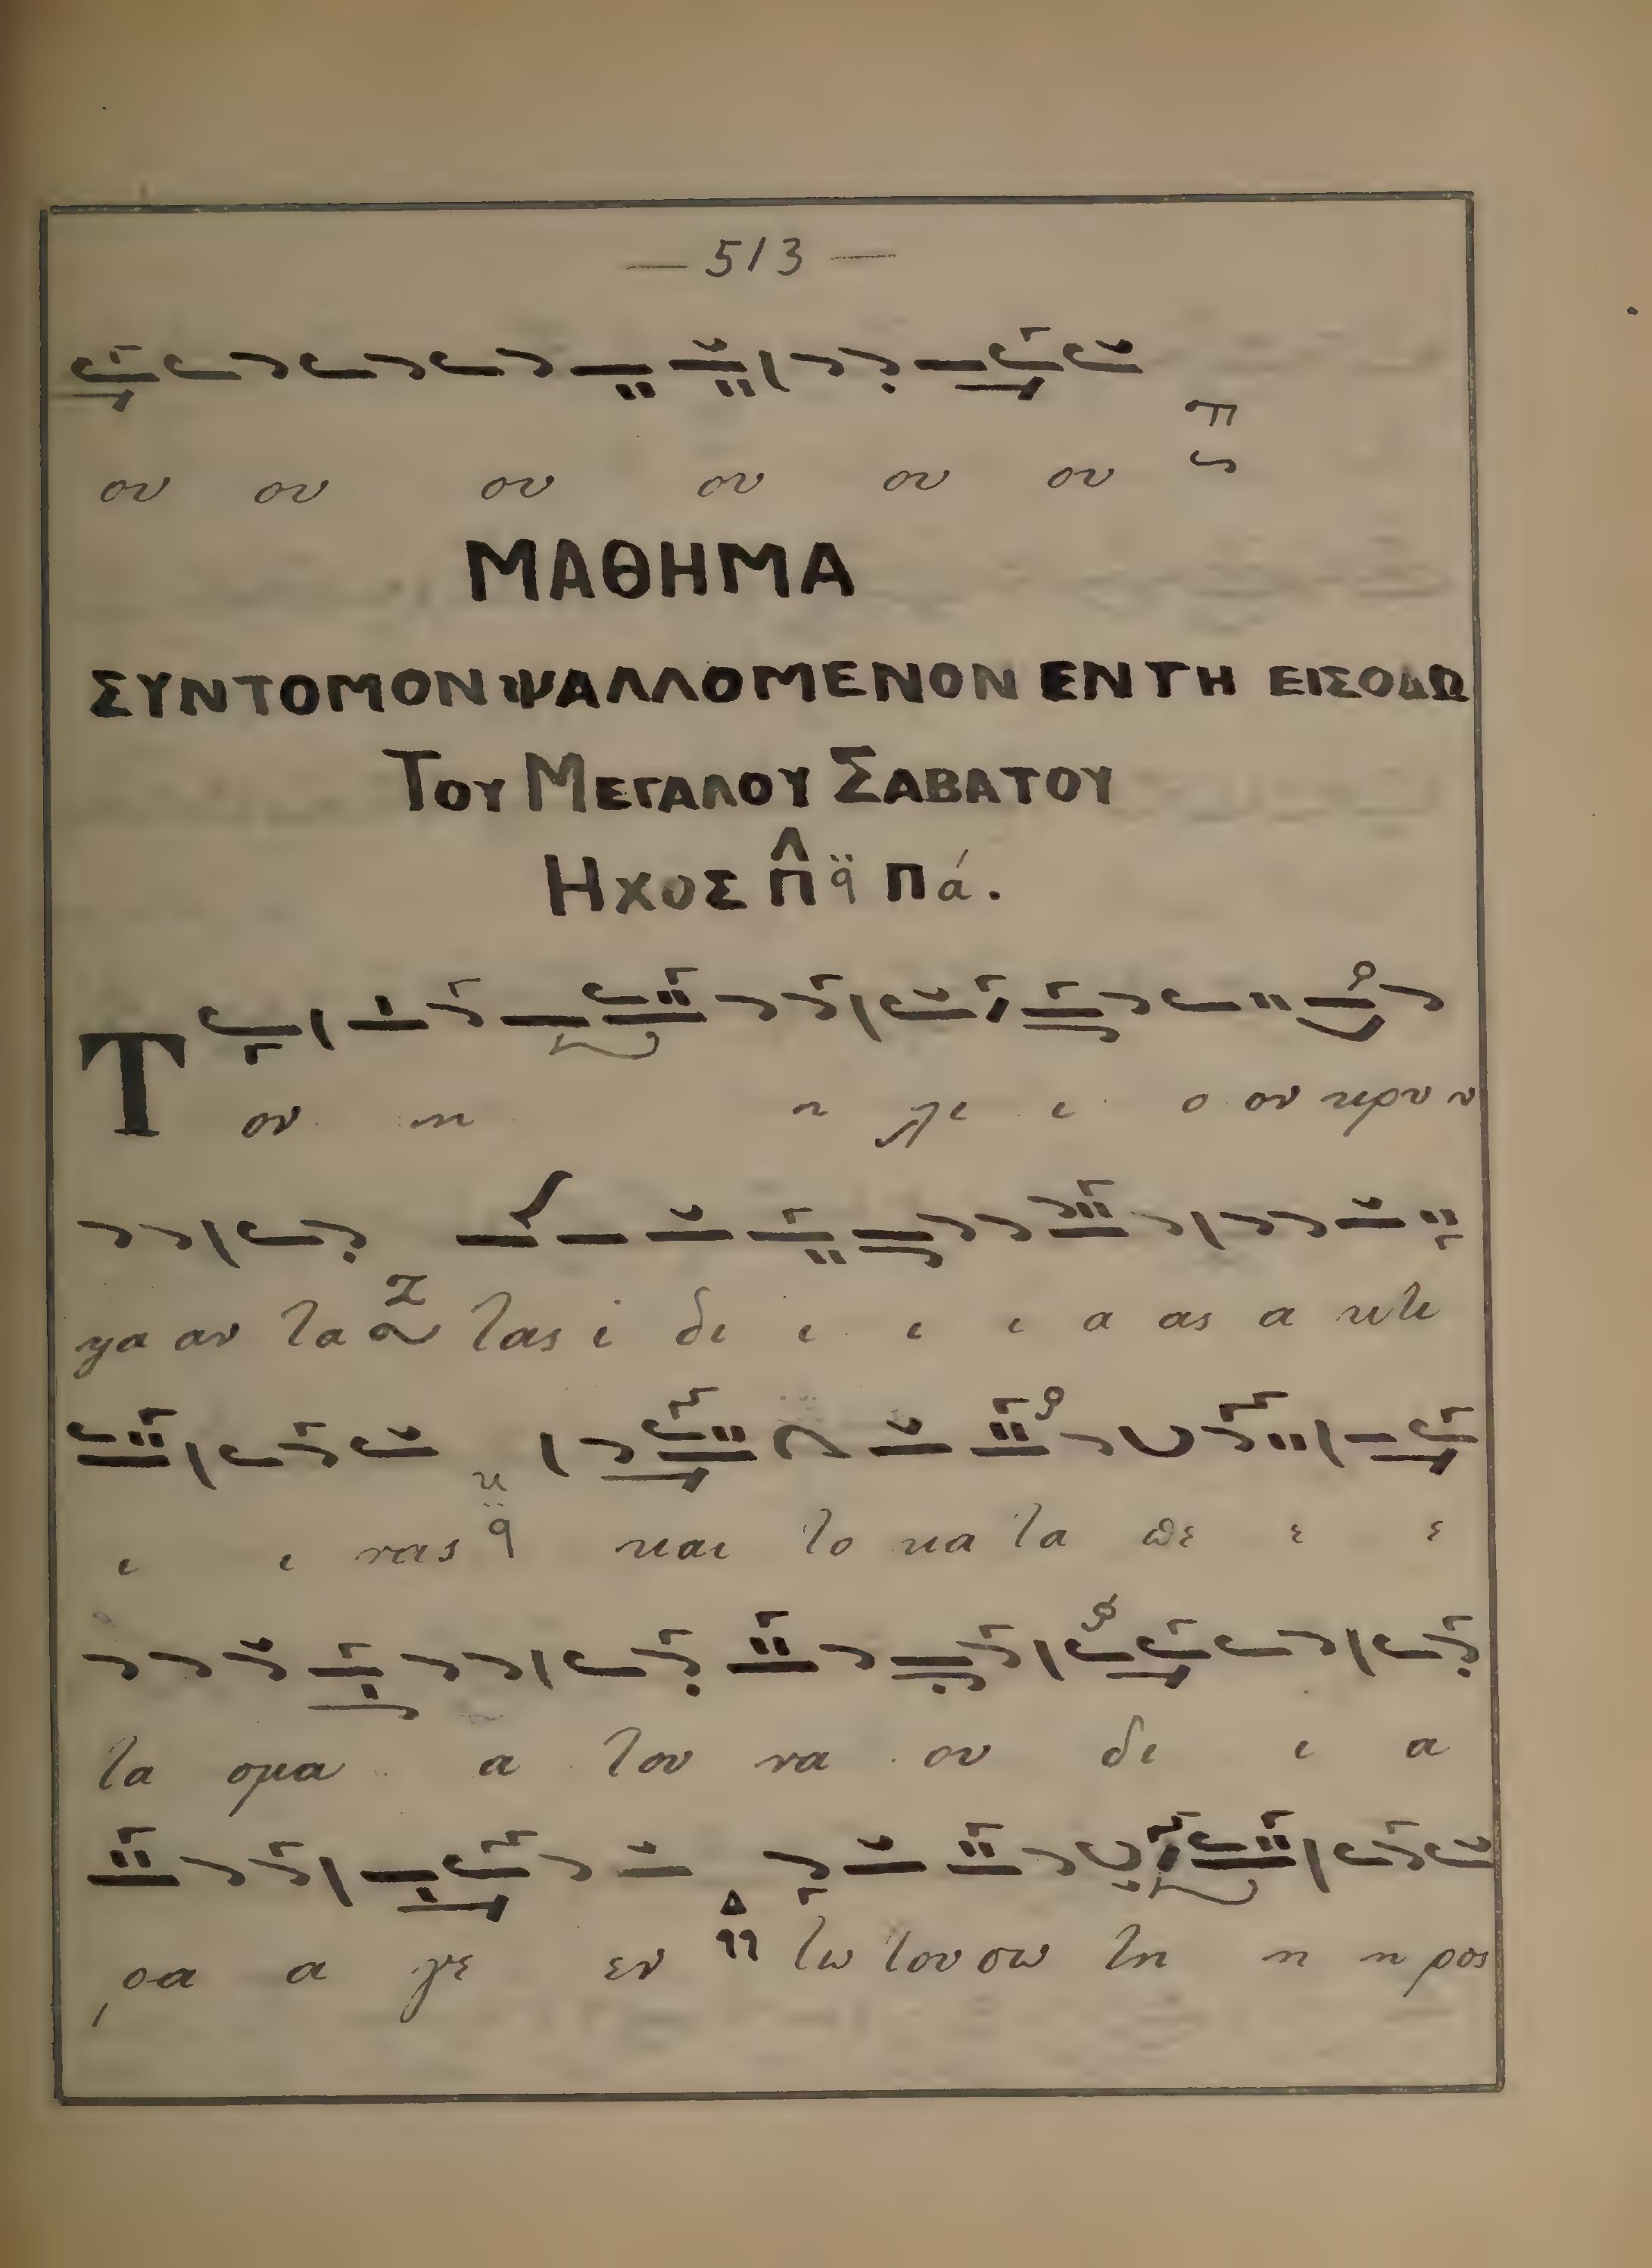 — 513 —
ου ου ου ου ου ου
ΜΑΘΗΜΑ
ΣΥΝΤΟΜΟΝ ΨΑΛΛΟΜΕΝΟΝ ΕΝ ΤΗ ΕΙΣΟΔΩ
ΤΟΥ ΜΕΓΑΛΟΥ ΣΑΒΑΤΟΥ
ΗΧΟΣ Πα.
Τον η η λι ι ο ον κρυ υ
ψα αν τα τας ι δι ι ι ι α ας α κτι
ι ι νας και το κα τα πε ε ε
τα σμα α του να ου δι ι α
ρρα α γε εν τω του σω τη η η ρος